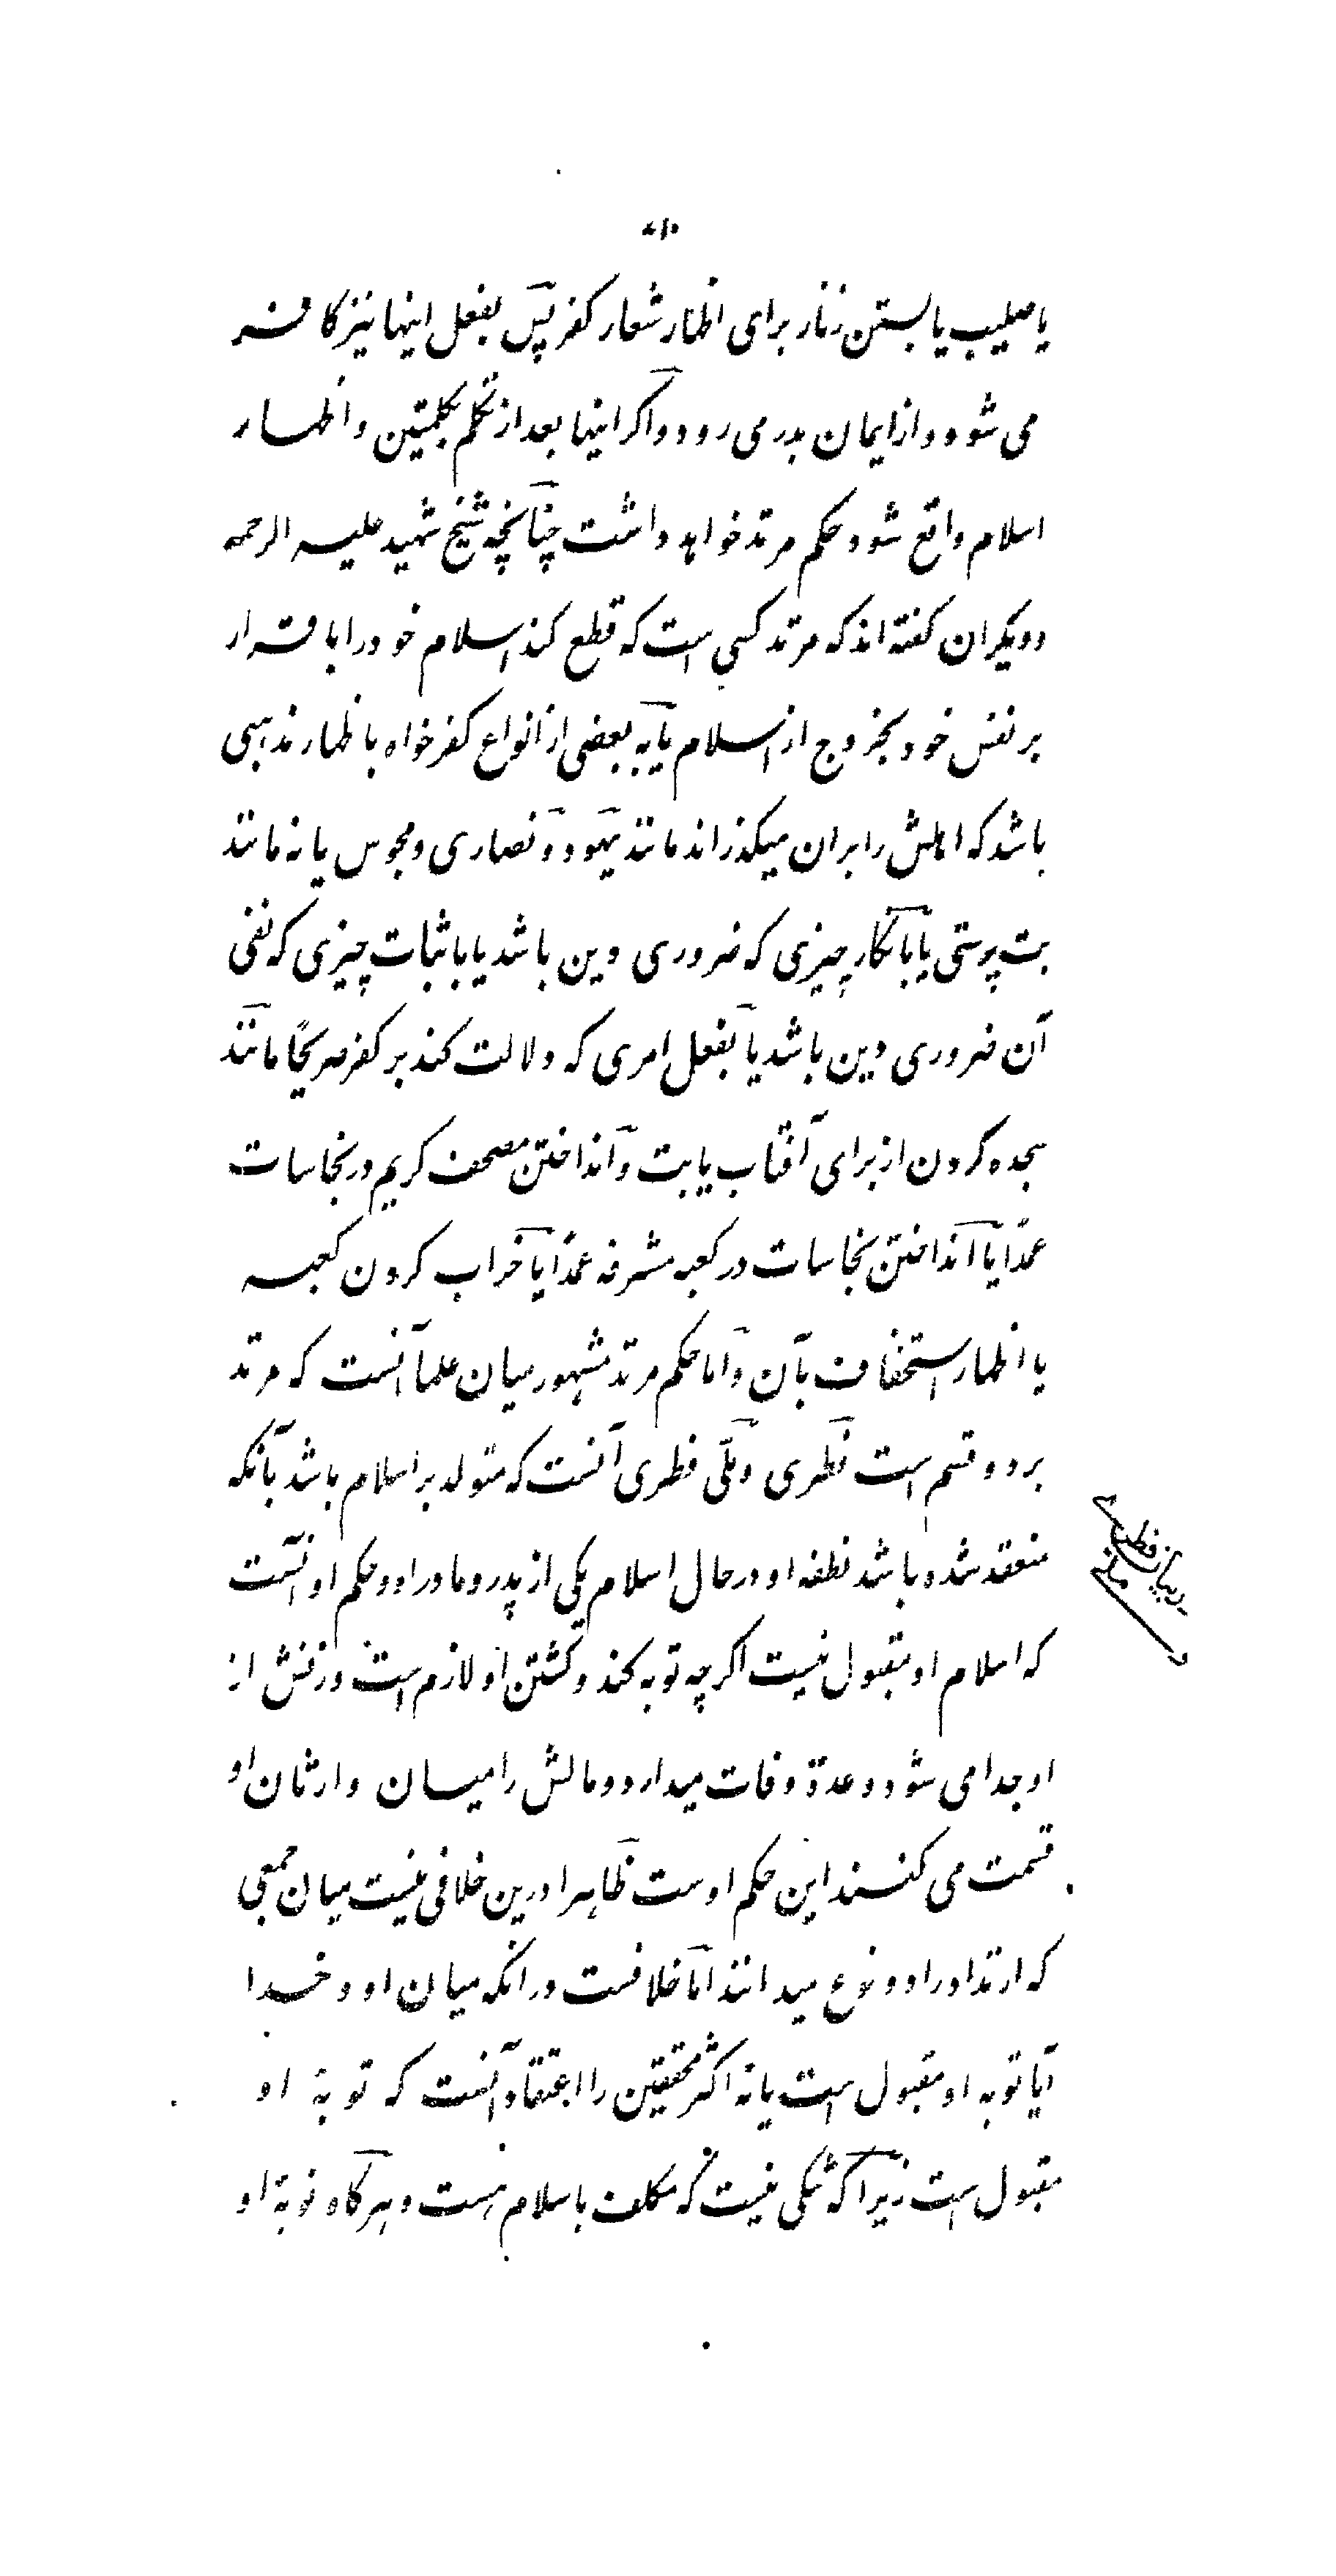 یا صلیب یا بستن زنار برای اظهار شعار کفر پس بفعل اینها نیز کافر
می شود و از ایمان بدر می رود و اگر اینها بعد از تکلم بکلمتین و اظهار
اسلام واقع شود حکم مرتد خواهد داشت چنانچه شیخ شهید علیه الرحمه
و دیگران گفته اند که مرتد کسی است که قطع کند اسلام خود را باقرار
بر نفس خود بخروج از اسلام یا به بعضی از انواع کفر خواه باظهار مذهبی
باشد که اهلش را بران میگذراند مانند یهود و نصاری و مجوس یا نه مانند
بت پرستی یا بانکار چیزی که ضروری دین باشد یا باثبات چیزی که نفی
آن ضروری دین باشد یا بفعل امری که دلالت کند بر کفر صریحاً مانند
سجده کردن از برای آفتاب یا بت و انداختن مصحف کریم در نجاسات
عمداً یا انداختن نجاسات در کعبه مشرفه عمداً یا خراب کردن کعبه
یا اظهار استخفاف بآن و اما حکم مرتد مشهور میان علما آنست که مرتد
بر دو قسم است فطری و ملّی فطری آنست که متولد بر اسلام باشد بآنکه
منعقد شده باشد نطفه او در حال اسلام یکی از پدر و مادر او و حکم او آنست
که اسلام او مقبول نیست اگرچه توبه کند و کشتن او لازم است و زنش از
او جدا می شود و عدة وفات میدارد و مالش را میان وارثان او
قسمت می کنند این حکم اوست ظاهرا درین خلافی نیست میان جمعی
که ارتداد را دو نوع میدانند اما خلافست در انکه میان او و خدا
آیا توبه او مقبول است یا نه اکثر محققین را اعتقاد آنست که توبۀ او
مقبول است زیرا که شکی نیست که مکلف باسلام هست و هر گاه توبۀ او